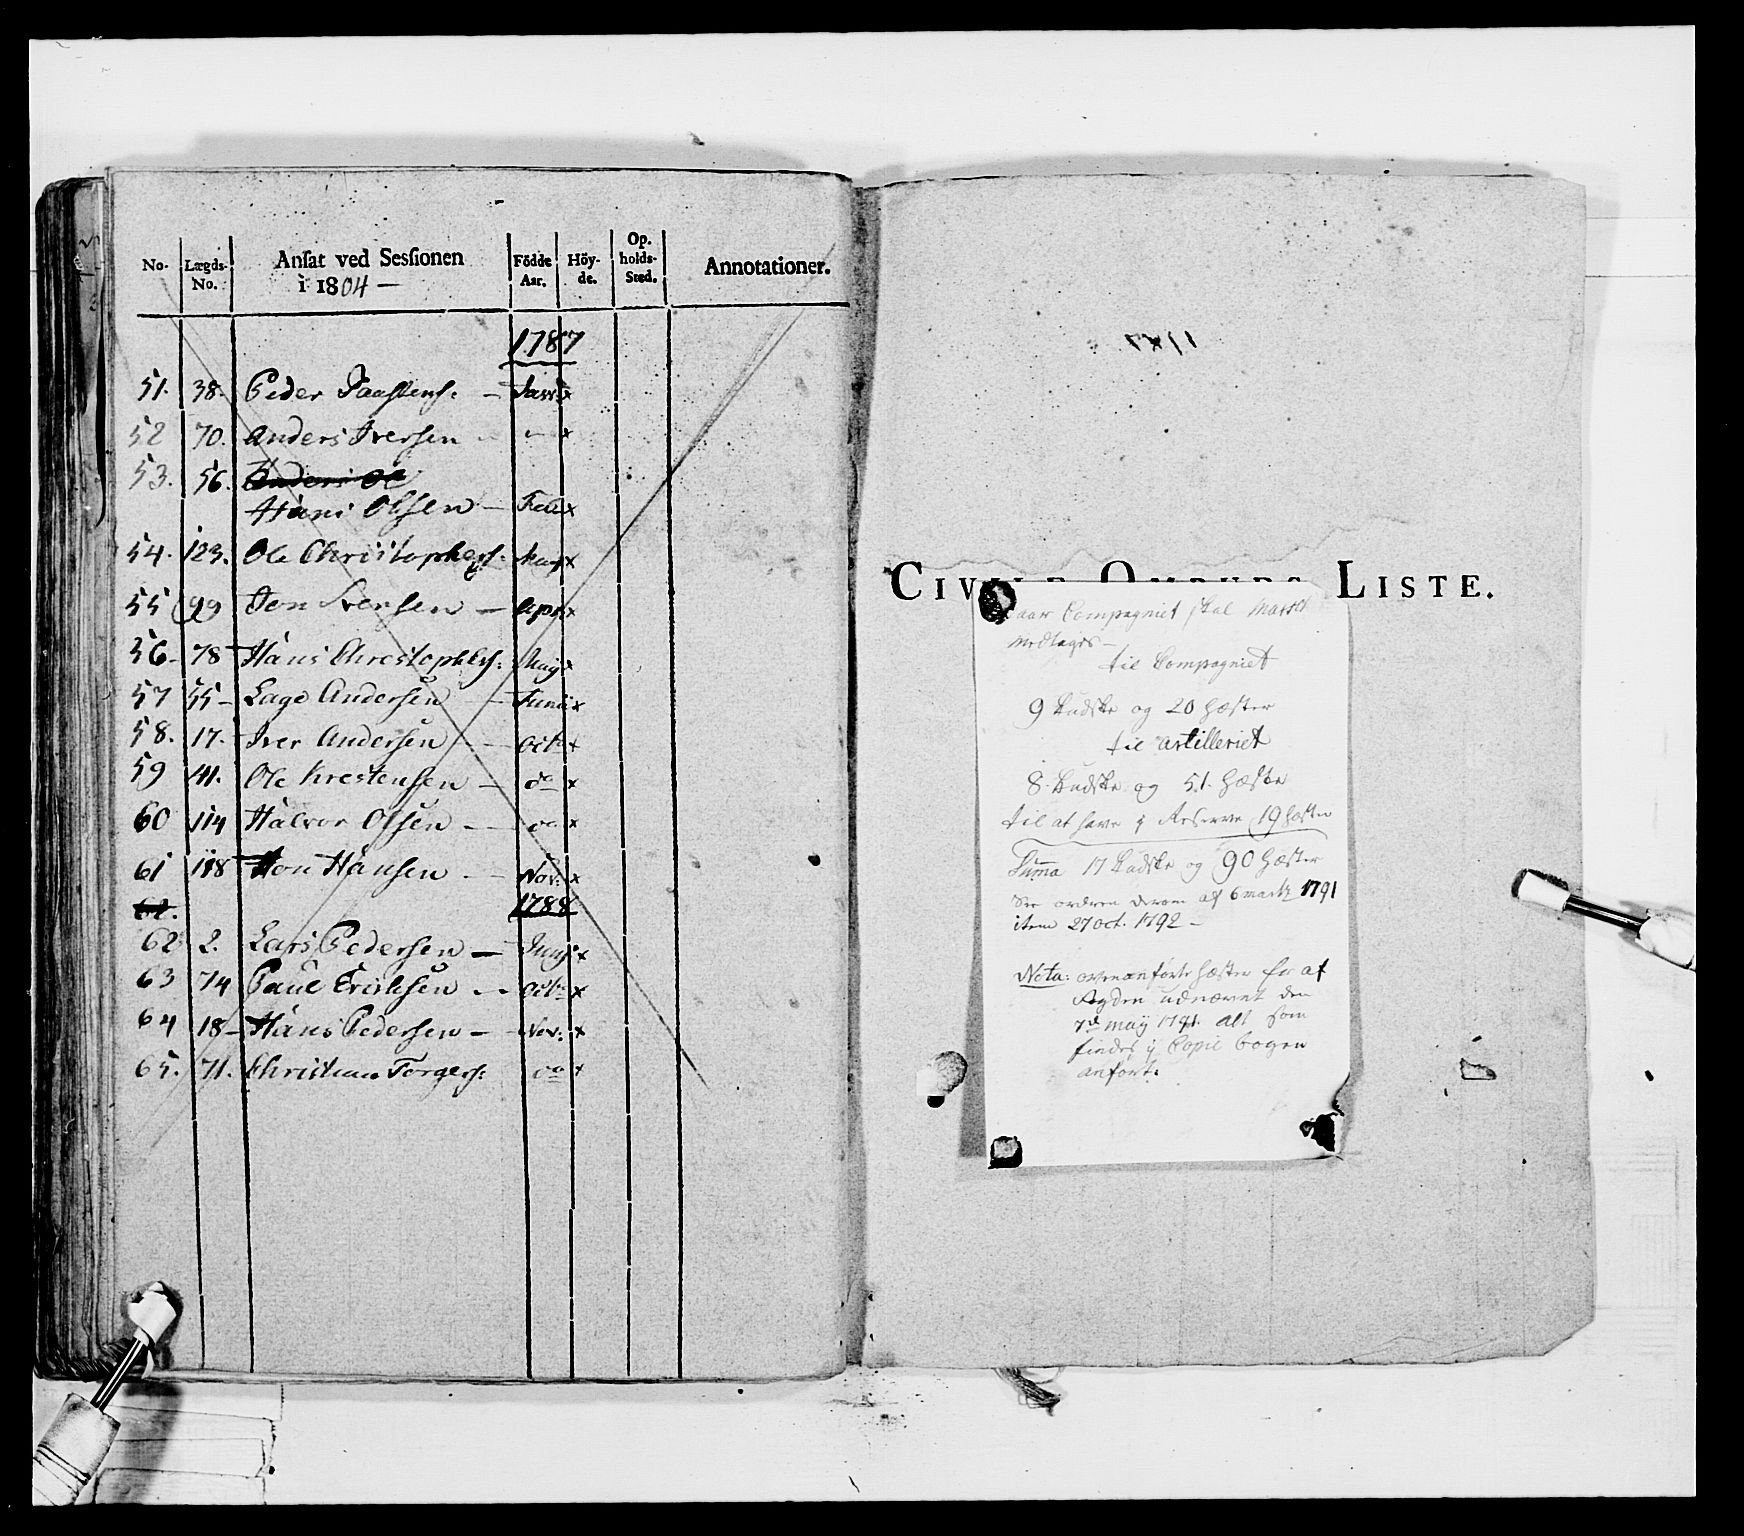 No. Lægds- No. Ansat ved Sessionen i 1804 — Födde Aar. Höy- de. Op- holds- Sted. Annotationer.
1787
51. 38. Peder Paastens: — Janv x
52 70. Anders Iversen — x
53. 56. Anders Ol
Hans Olssen — Febr x
54. 123. Ole Christophers: Marz x
55 99 Jon Svensen — Apr x
56. 78 Hans Christophers: Maj x
57 55 — Lage Andersen — Junii x
58. 17. Iver Andersen — Octb x
59 41. Ole Krestensen — do x
60 114 Halvor Olsen — do x
61 118 Jon Hansen — Nov: x
62. 1788
62 2. Lars Pedersen — Junij x
63 74 Paul Erichsen — Octb: x
64 18 — Hans Pedersen — Nov: x
65. 71. Christian Torgers: do x
CIVILE OMBUDS LISTE.
naar Compagniet skal
medtages —
til Compagniet
9 Kudske og 20 Hæster
til artilleriet
8 Kudske og 51. Hæste
til at have i Reserve 19 Hæster
Suma 17 Kudske og 90 Hæster
See ordren derom af 6 martz 1791
item 27 oct. 1792 —
Nota: ovenanførte Hæster er af
udnævnt den
7de maij 1791. alt som
findes i Copie bogen
anført.